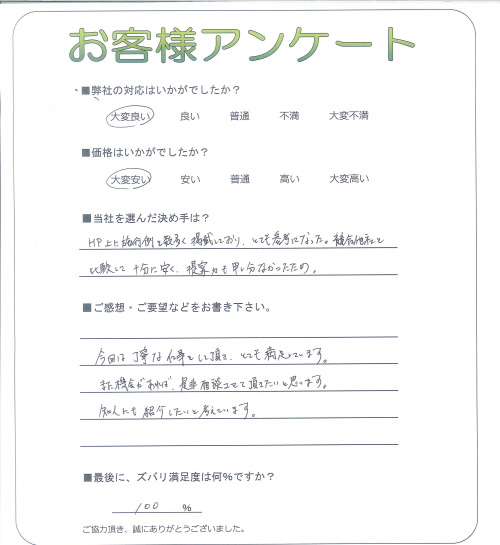 お客様アンケート
■弊社の対応はいかがでしたか？
大変良い 良い 普通 不満 大変不満
■価格はいかがでしたか？
大変安い 安い 普通 高い 大変高い
■当社を選んだ決め手は？
HP上に施行例を数多く掲載しており、とても参考になった。競合他社と
比較して十分に安く、提案力も申し分なかったため。
■ご感想・ご要望などをお書き下さい。
今回は丁寧な仕事をして頂き、とても満足しています。
また機会があれば、是非相談させて頂きたいと思います。
知人にも紹介したいと考えています。
■最後に、ズバリ満足度は何%ですか？
100 %
ご協力頂き、誠にありがとうございました。